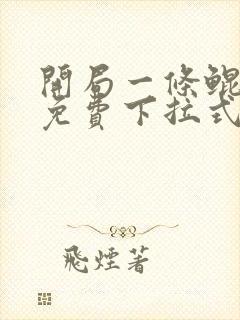 開局一條鯤
免費下拉式
飛煙著